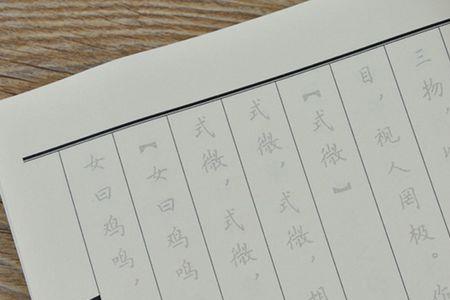 三物，
目，视人罔极。
【式微】
式微，式微，
式微，式微，
【女曰鸡鸣
女曰鸡鸣，